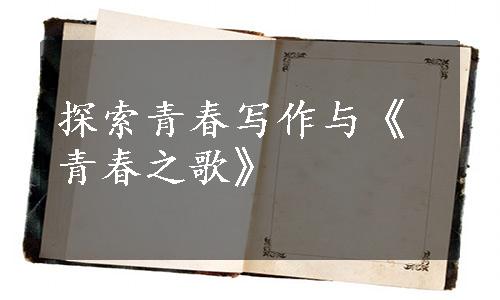 探索青春写作与《
青春之歌》